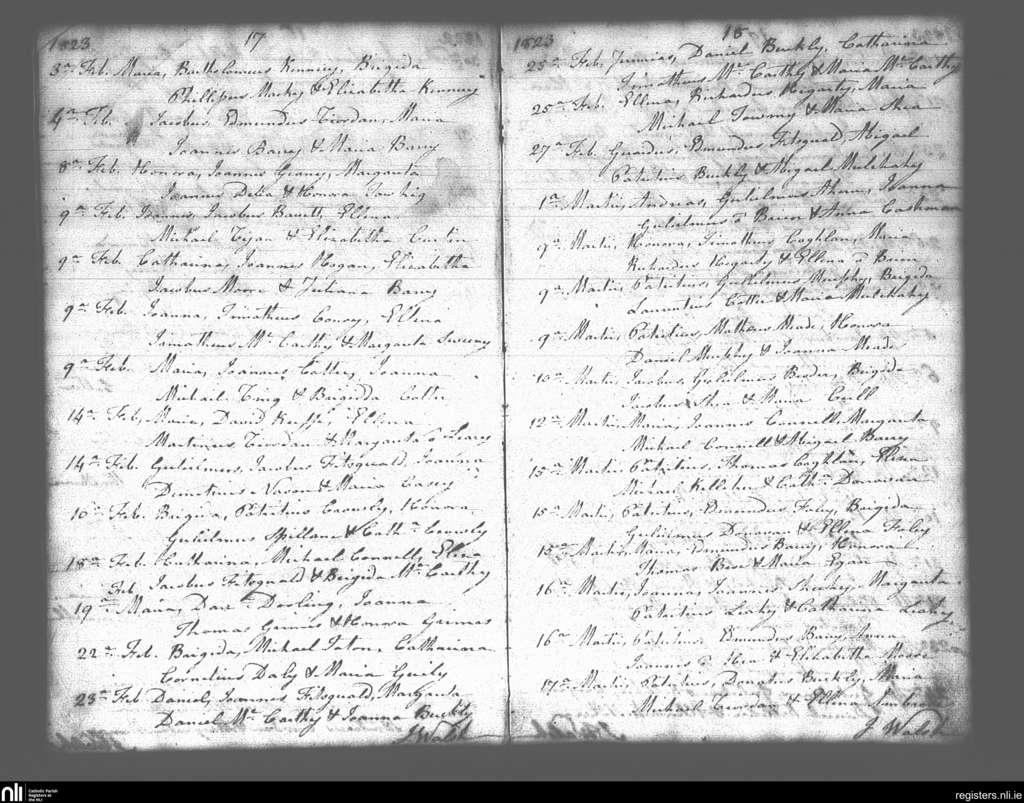 1823 17
3a Feb. Maria, Bartholomeus Kenniry, Brigida
Phillipus Mackey & Elizabetha Kenniry
4a Feb. Jacobus, Edmundus Riordan, Maria
Joannes Barry & Maria Barry
8a Feb. Honora, Joannes Geary, Margarita
Joannes Delea & Honora
9a Feb. Joannes, Jacobus Barrett, Ellena
Michael Ryan & Elizabetha Curtin
9a Feb. Catharina, Joannes Hogan, Elizabetha
Jacobus Moore & Juliana Barry
9a Feb. Joanna, Timotheus Conroy, Ellena
Timotheus Mc Carthy & Margarita Sweeny
9a Feb. Maria, Joannes Cotter, Joanna
Michael Ring & Brigida Cotter
14a Feb. Maria, David Keeffe, Ellena
Martinus Riordan & Margarita O Leary
14a Feb. Gulielmus, Jacobus Fitzgerald, Joanna
Demetrius & Maria Casey
Feb. Brigida, Patritius Honora
Gulielmus Spillane & Cath.
18a Feb. Catharina, Michael Connell, Elena
Feb. Jacobus Fitzgerald & Brigida Mc Carthy
19a Maria, Dowling, Joanna
Thomas & Honora
22a Feb. Brigida, Michael Catharina
Cornelius Daly & Maria
23a Feb Daniel, Joannes Fitzgerald, Margarita
Daniel Mc Carthy & Joanna Buckly
J Walsh
1823 18
25a Feb. Daniel Buckly, Catharina
Timotheus Mc Carthy & Maria Mc Carthy
25a Feb. Ellena, Richardus Hegarty, Maria
Michael & Maria Shea
27a Feb. Edmundus Fitzgerald, Abigael
Patritius Buckly & Abigael Mulchahy
1a Martii, Andreas, Gulielmus Ahern, Joanna
Gulielmus & Anna Cashman
9a Martii, Honora, Timotheus Coghlan, Maria
Richardus Hegarty & Ellena
9a Martii, Patritius, Gulielmus Murphy, Brigida
Laurentius Cotter & Maria Mulchahy
9a Martii, Patritius, Matheus Meade, Honora
Daniel Murphy & Joanna Meade
10a Martii, Jacobus, Gulielmus Brigida
Jacobus Shea & Maria
12a Martii, Maria, Joannes Connell, Margarita
Michael Connell & Abigael Barry
15a Martii, Patritius, Thomas Coghlan, Ellena
Michael Kelleher & Cath. Donovan
15a Martii, Patritius, Edmundus Foley, Brigida
Gulielmus & Ellena Foley
15a Martii, Maria, Edmundus Barry, Honora
Thomas & Maria Egan
16a Martii, Joanna, Joannes Sheehy, Margarita
Patritius Leahy & Catharina Leahy
16a Martii, Patritius, Edmundus Barry, Anna
Joannes & Elizabetha Moore
17a Martii, Patritius, Donatus Buckly, Maria
Michael Riordan & Ellena
J Walsh
nli Catholic Parish
Registers at
the NLI
registers.nli.ie